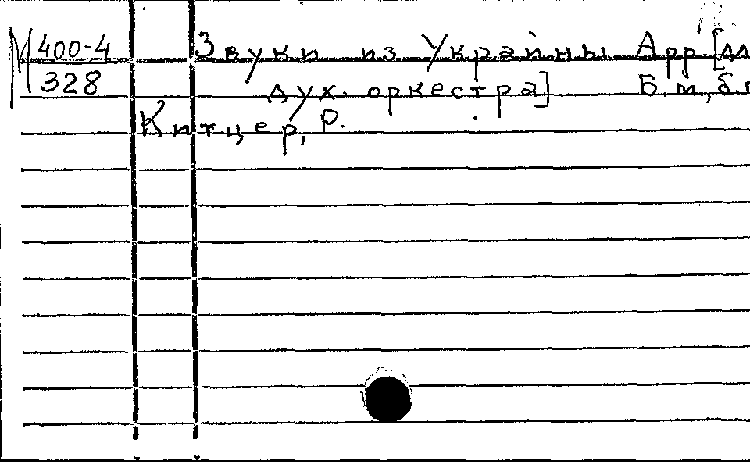 М 400-4 Звуки из Украины Арр [дл
328 дух. оркестра] Б.м, б.г
Китцер, Р.